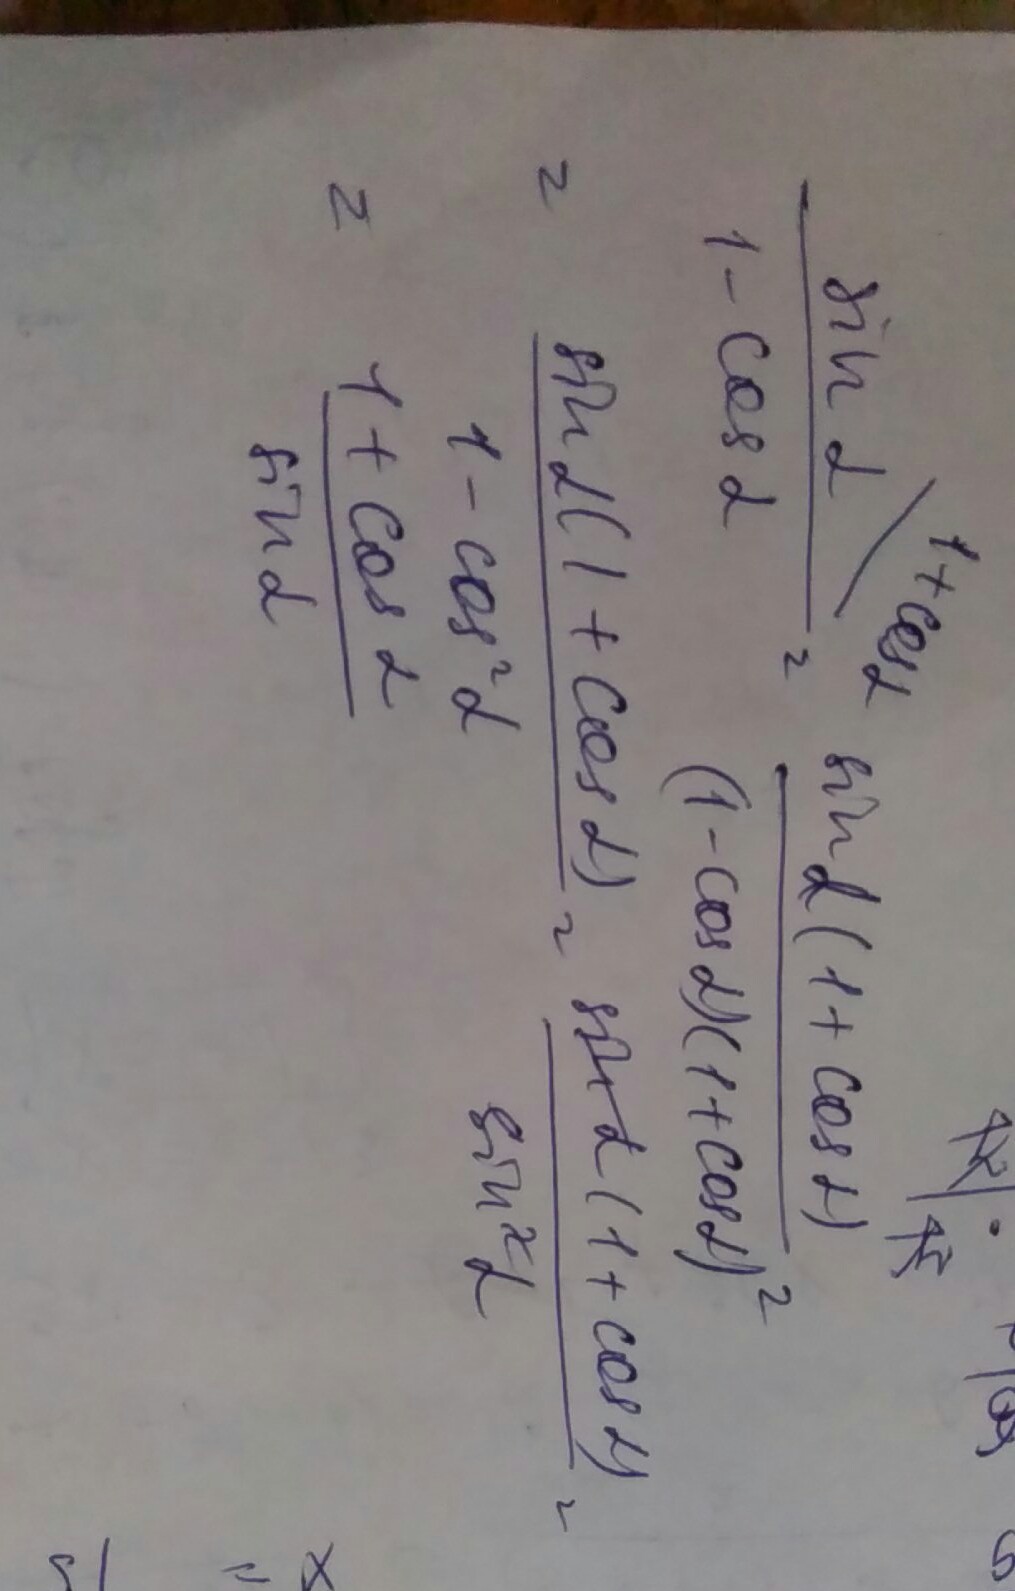 sin α / 1 - cos α \ 1 + cos α = sin α (1 + cos α) / (1 - cos α)(1 + cos α) =
= sin α (1 + cos α) / 1 - cos² α = sin α (1 + cos α) / sin² α =
= 1 + cos α / sin α